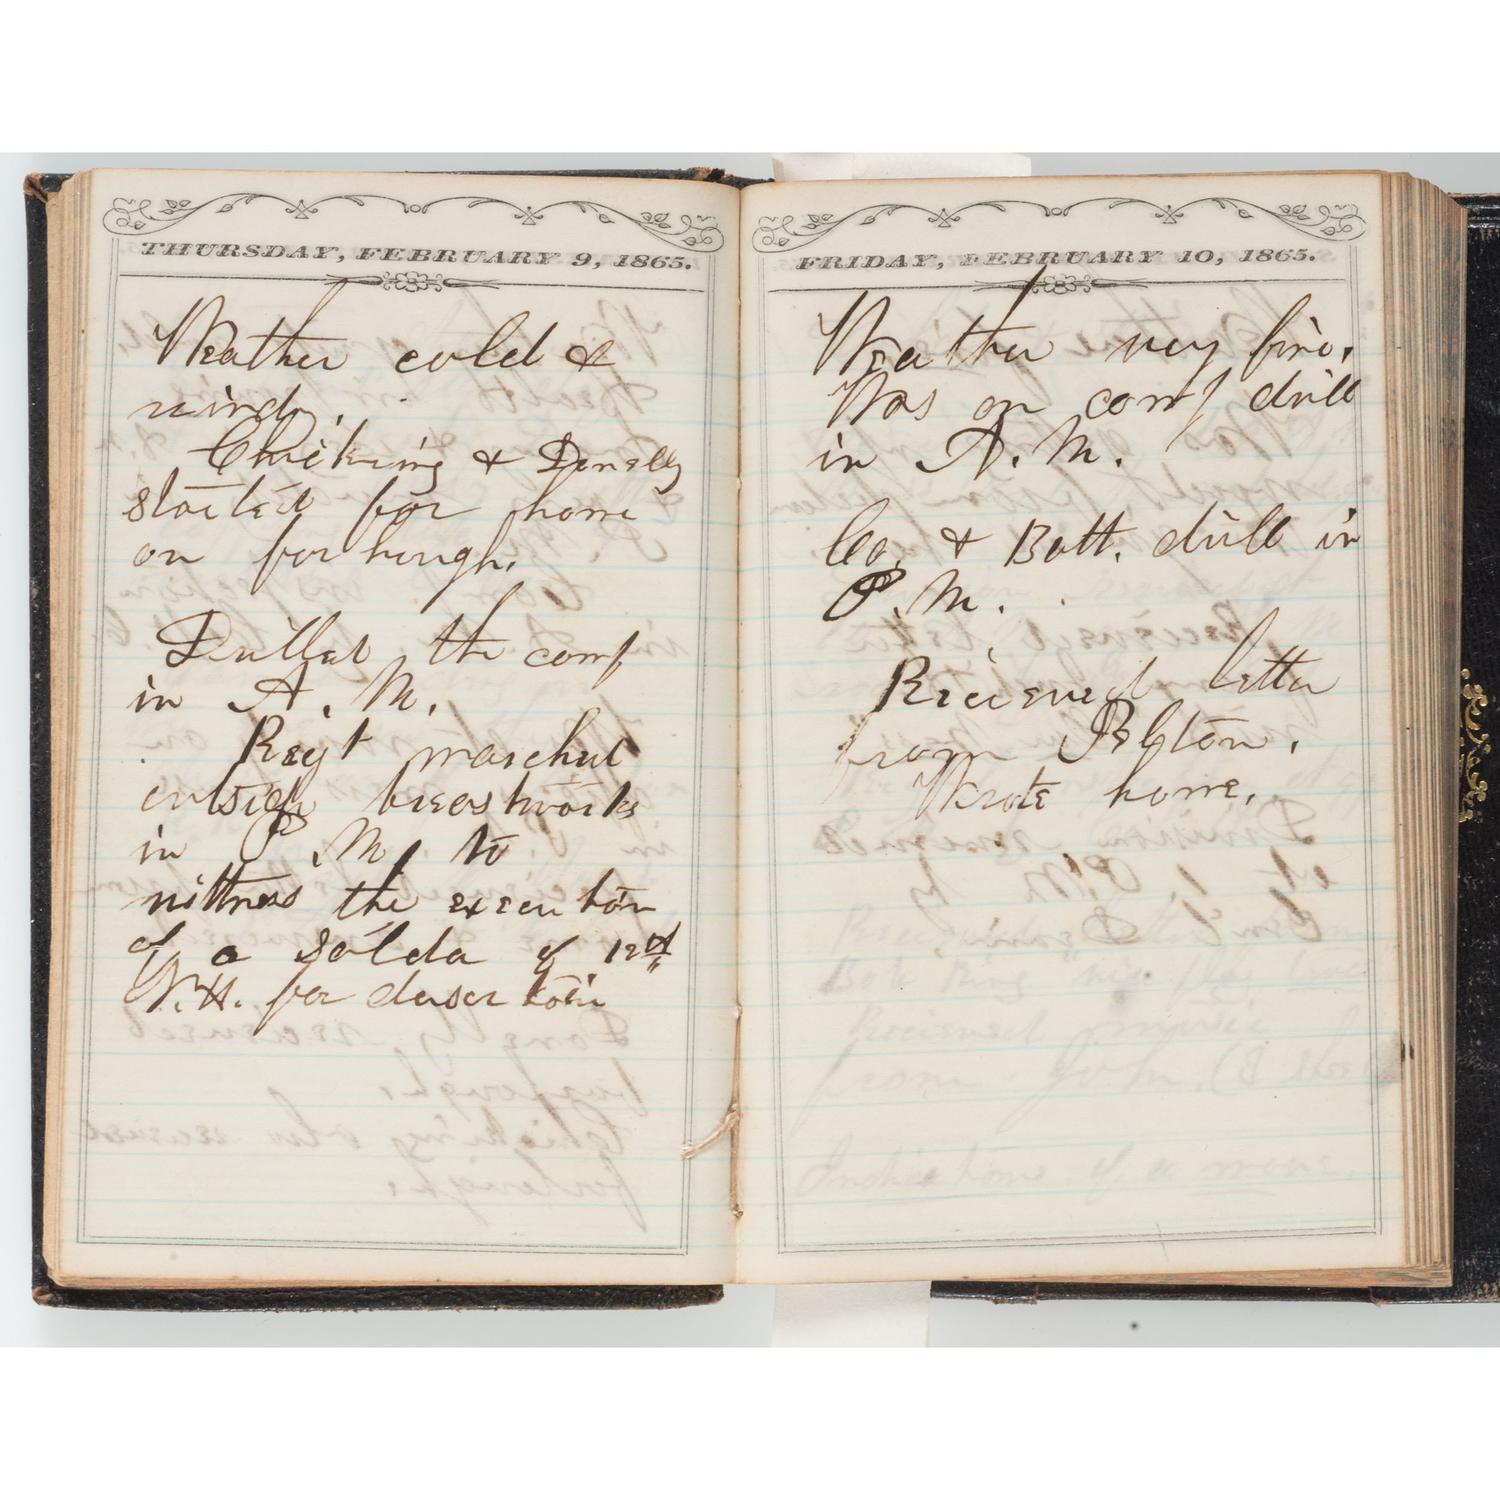 THURSDAY, FEBRUARY 9, 1865.
Weather cold &
windy.
Chicking & Donelly
started for home
on forlough.
Drilled the comp
in A. M.
Regt marched
outside breastworks
in P. M. to
wittness the execution
of a solder of 12th
N.H. for desertion
FRIDAY, FEBRUARY 10, 1865.
Weather very fine.
Was on comp drill
in A. M.
Co. & Batt. drill in
P. M.
Recieved letter
from
Wrote home.